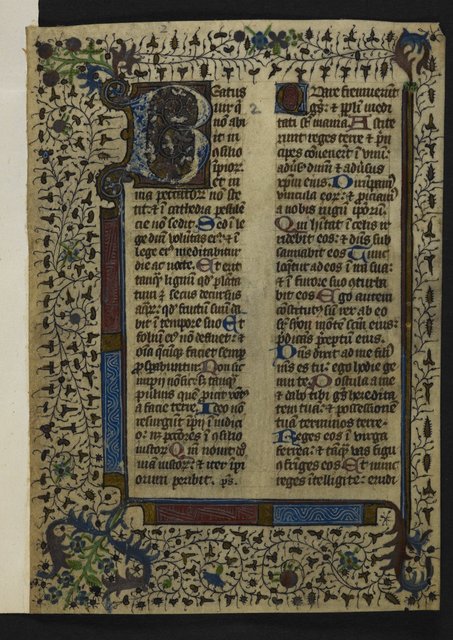 Beatus
uir q
nō abi
it in
ōsilio
ipior
et in
uia peccator nō ste
tit et i cathedra pestilē
cie nō sedit Sed i le
ge dni voluntas eiꝰ et i
lege eiꝰ meditabitur
die ac nocte Et erit
tanq lignum qd plāta
tum ē secus decursus
aqr qd fructū suū da
bit i tempore suo Et
foliū eiꝰ nō defluet et
oīa quecūq faciet semp
prosperabuntur Non sic
impii nō sic s tanq
puluis quē proicit vētꝰ
a facie terre Ideo nō
resurgūt impii i iudici
o nec pctores i cōsilio
iustor Qm nouit dns
uia iustor et iter ipi
orum peribit ps
2
Quare fremuerūt
gēs et ppli medi
tati sūt inania Astite
runt reges terre et prī
cipes cōuenerūt i vnū
aduersꝰ dnum et aduersus
xpm eius Dirupamꝰ
vincula eor et piciamꝰ
a nobis iugū ipōrū
Qui hitat i celis ir
ridebit eos et dns sub
sannabit eos Tunc
loqtur ad eos i ira sua
et i furore suo cōturba
bit eos Ego autem
cōstitutꝰ sū rex ab eo
sr syon mōtē scm eius
pdicās preceptū eius
Dns dixit ad me filiꝰ
meꝰ es tu ego hodie ge
nui te Postula a me
et dabo tibi gētes heredita
tem tuā et possessionē
tuā terminos terre
Reges eos i virga
ferrea et tanq vas figu
li cōfriges eos Et nunc
reges itelligite erudi